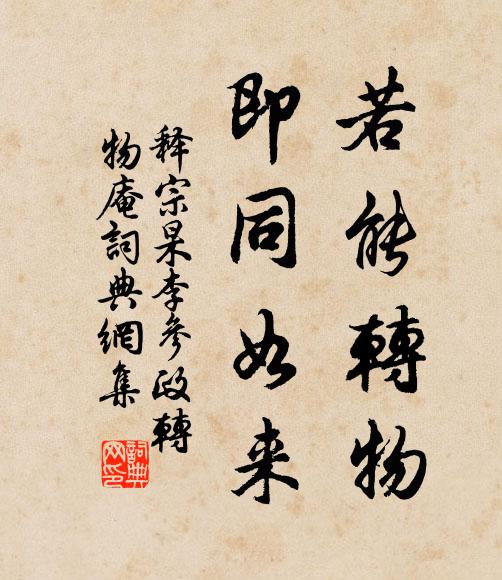 若能轉物
即同如来
释宗杲李參政轉
物庵詞典網集
詞典
网印